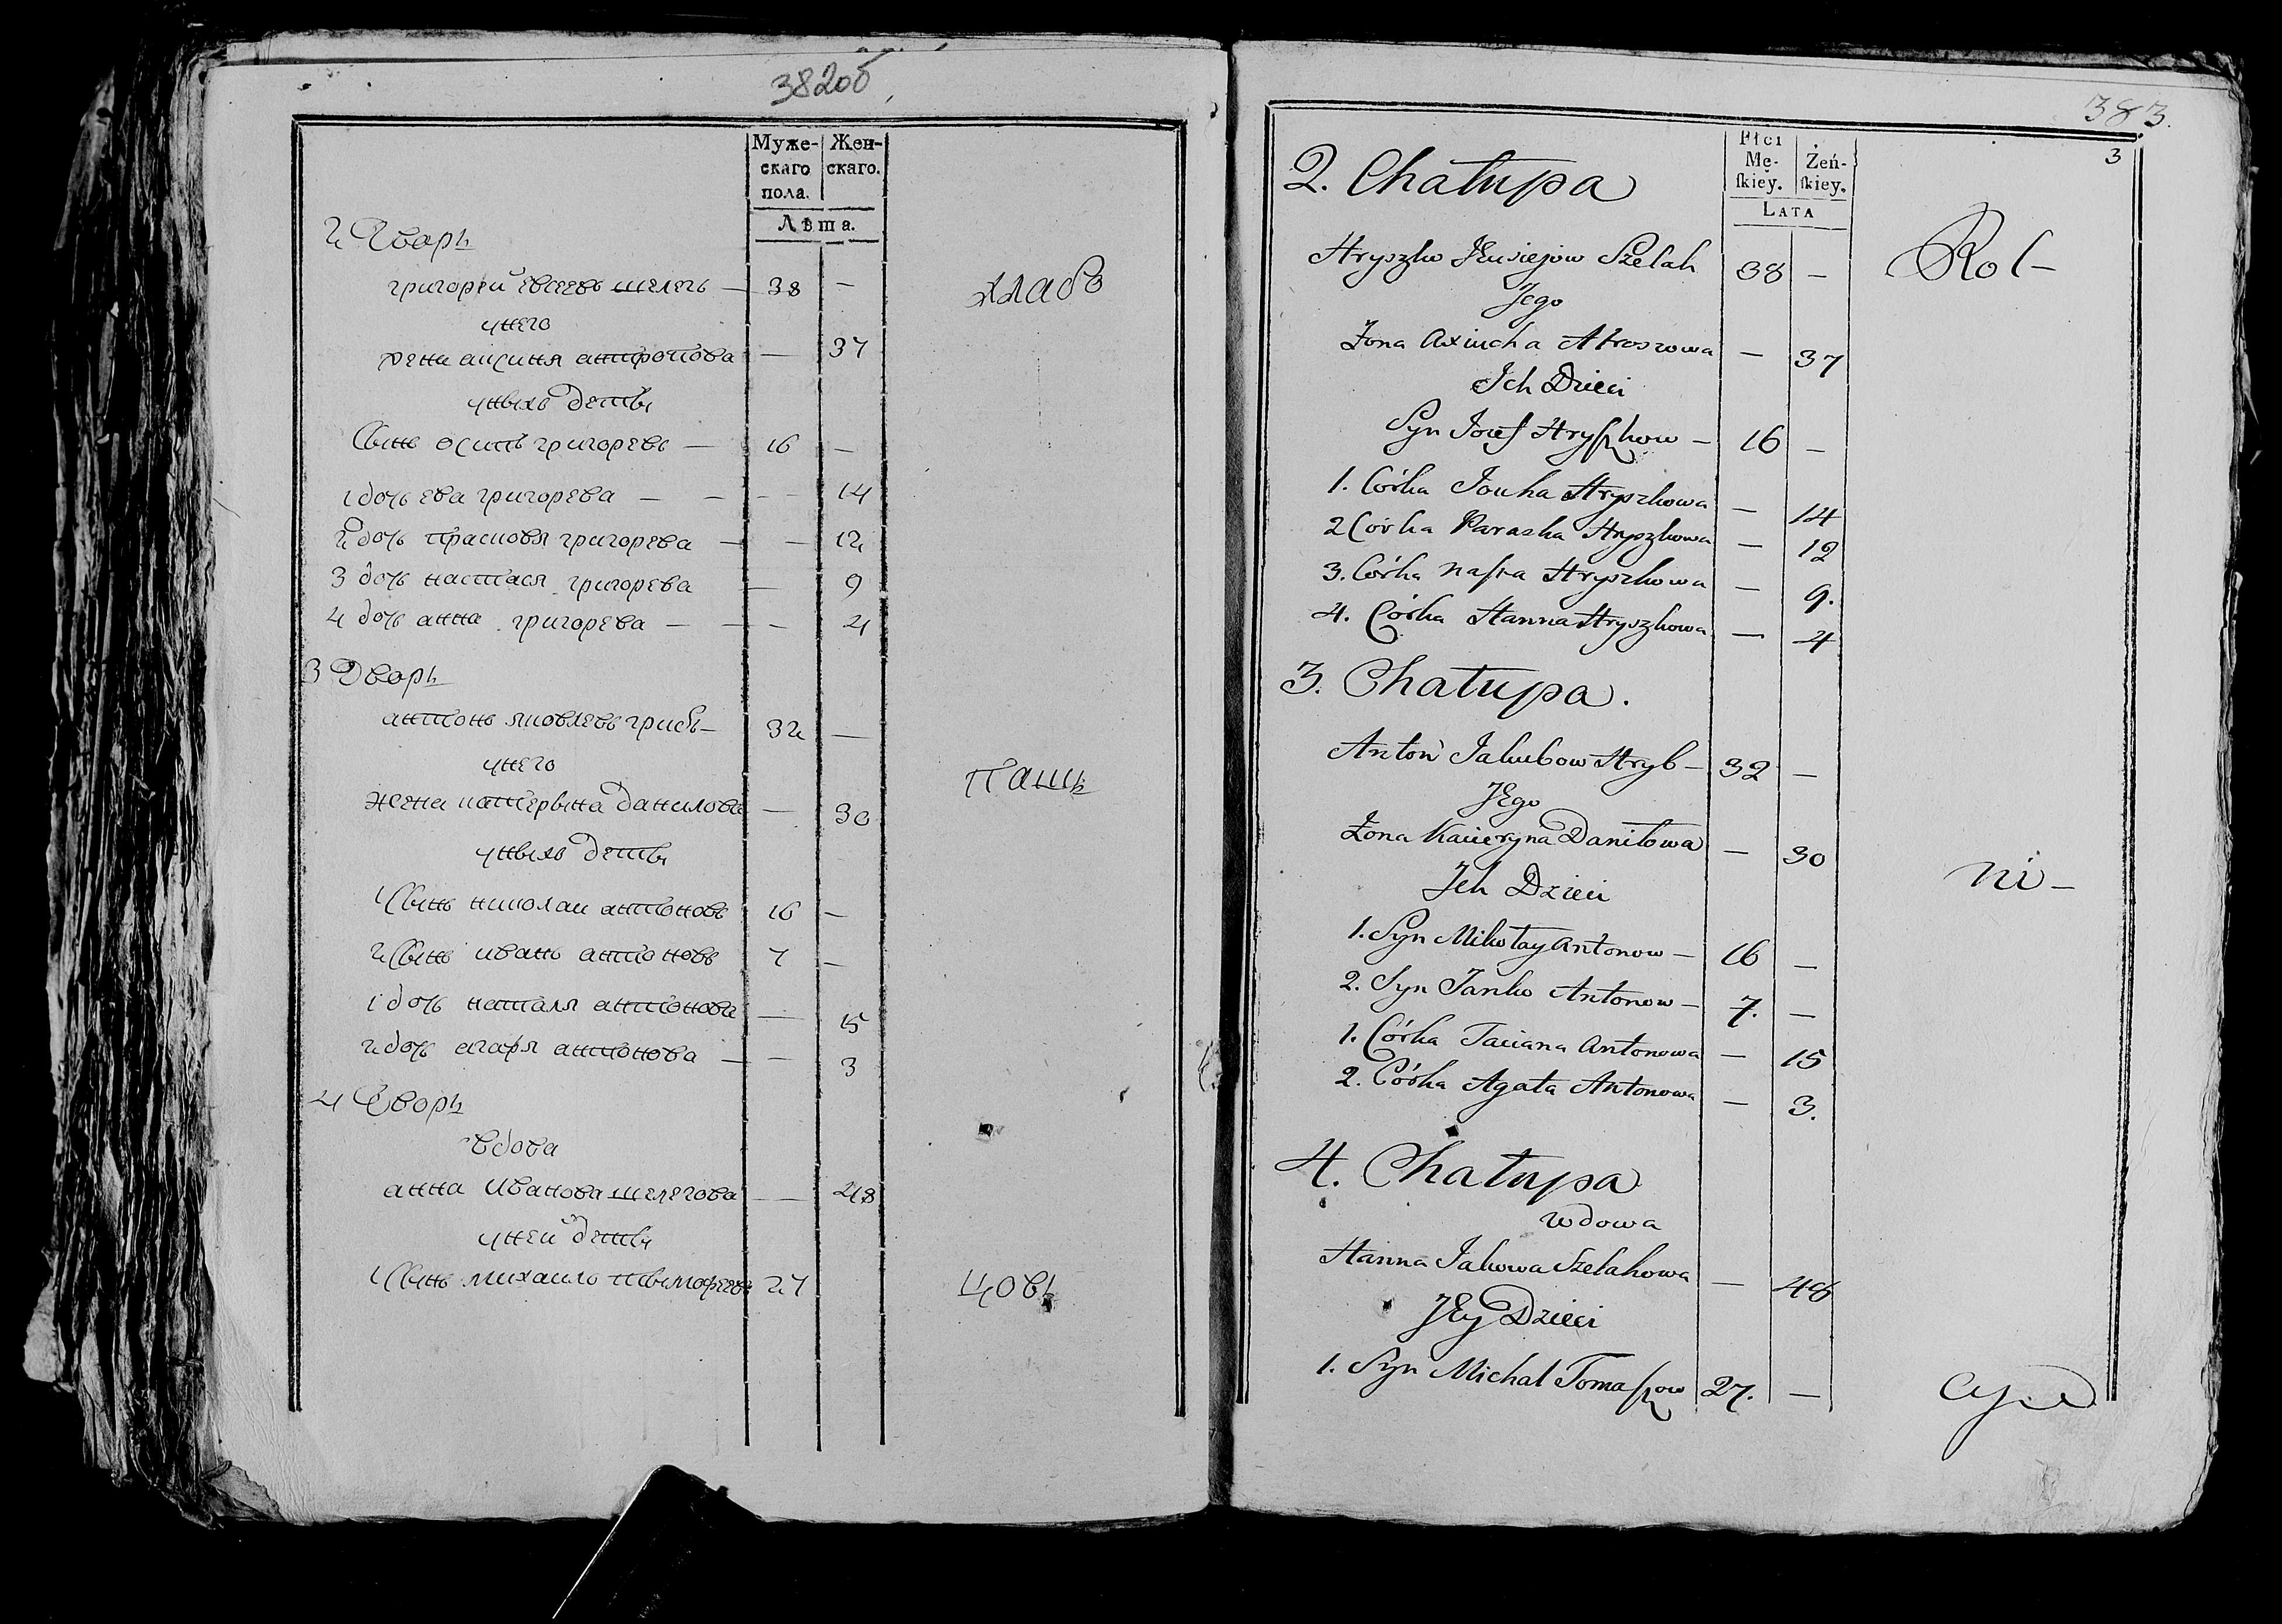 382об
Муже-
скаго
пола.
Жен-
скаго.
Лѣта.
2 Дворъ
григорей евсеевъ шелегъ — 38 —
унего
жена аксиня антропова — 37
уныхъ дети
Сынъ осипъ григоревъ — 16 —
1 дочь ева григорева — — — 14
2 дочь прасковя григорева — — 12
3 дочь настася григорева — 9
4 дочь анна григорева — — — 4
3 Дворъ
антонъ яковлевъ грибъ — 32 —
унего
жена катерына данилова — 30
уныхъ дети
1 Сынъ николаи антоновъ 16 —
2 Сынъ иванъ антоновъ 7 —
1 дочь наталя антонова — 15
2 дочь агафя антонова — — 3
4 Дворъ
вдова
анна Иванова шелегова — 48
уней дети
1 Сынъ михаило тымофеевъ 27
хлабо
паш
цовъ
383.
3
Płci
Mę-
ſkiey.
Żeń-
ſkiey.
LATA
2. Chałupa
Hryszko JEwsiejow Szelah 38 —
Jego
Żona Axiucha Atroszowa — 37
Ich Dzieci
Syn Jozef Hryſzkow — 16 —
1. Córka Jouka Hryszkowa — 14
2 Córka Paraska Hryszkowa — 12
3. Córka Nasta Hryszkowa — 9.
4. Córka Hanna Hryszkowa — 4
3. Chałupa.
Antoń Jakubow Hryb — 32 —
JEgo
Żona Kacieryna Daniłowa — 30
Jch Dzieci
1. Syn Mikołay Antonow — 16 —
2. Syn Janko Antonow — 7. —
1. Córka Taciana Antonowa — 15
2. Córka Agata Antonowa — 3.
4. Chałupa
wdowa
Hanna Jakowa Szelahowa — 48
JEy Dzieci
1. Syn Michał Tomaſzow 27. —
Rol-
ni-
cy